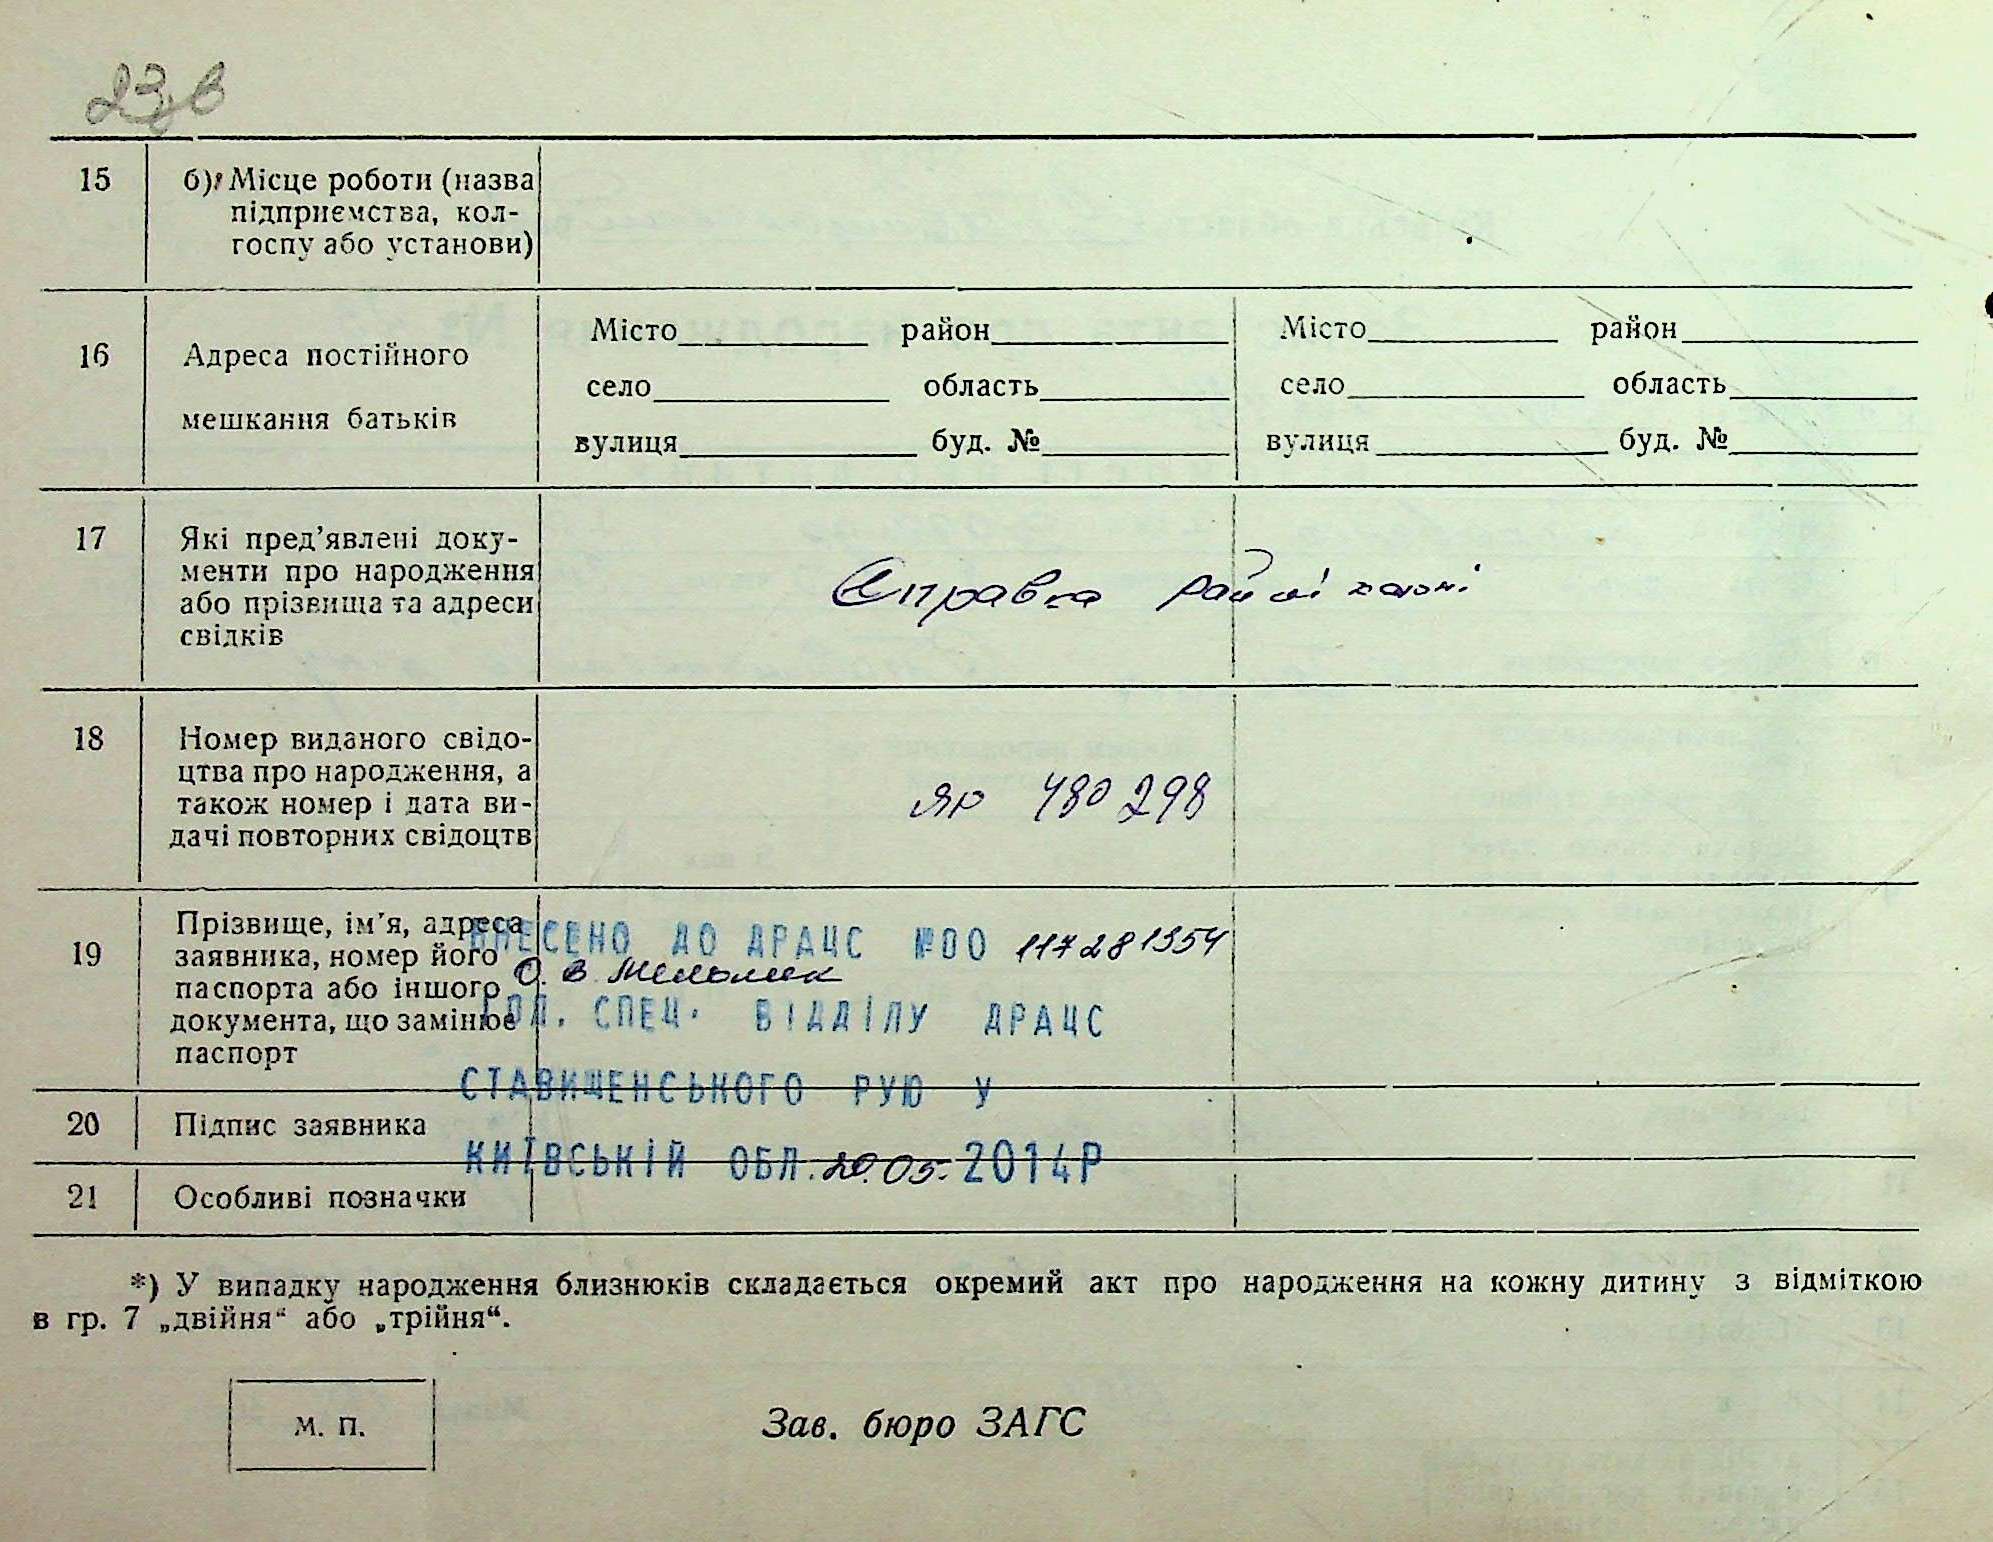 23
15 б) Місце роботи (назва
підприємства, кол-
госпу або установи)
16 Адреса постійного
мешкання батьків
Місто район Місто район
село область село область
вулиця буд. № вулиця буд. №
17 Які пред’явлені доку-
менти про народження
або прізвища та адреси
свідків
Справка
18 Номер виданого свідо-
цтва про народження, а
також номер і дата ви-
дачі повторних свідоцтв
ЯР 480298
19 Прізвище, ім’я, адреса
заявника, номер його
паспорта або іншого
документа, що замінює
паспорт
ВНЕСЕНО ДО ДРАЦС №00 117281354
О. В.
ГОЛ. СПЕЦ. ВІДДІЛУ ДРАЦС
СТАВИЩЕНСЬКОГО РУЮ У
КИЇВСЬКІЙ ОБЛ. 20.05.2014Р
20 Підпис заявника
21 Особливі позначки
*) У випадку народження близнюків складається окремий акт про народження на кожну дитину з відміткою
в гр. 7 „двійня“ або „трійня“.
М. П.
Зав. бюро ЗАГС